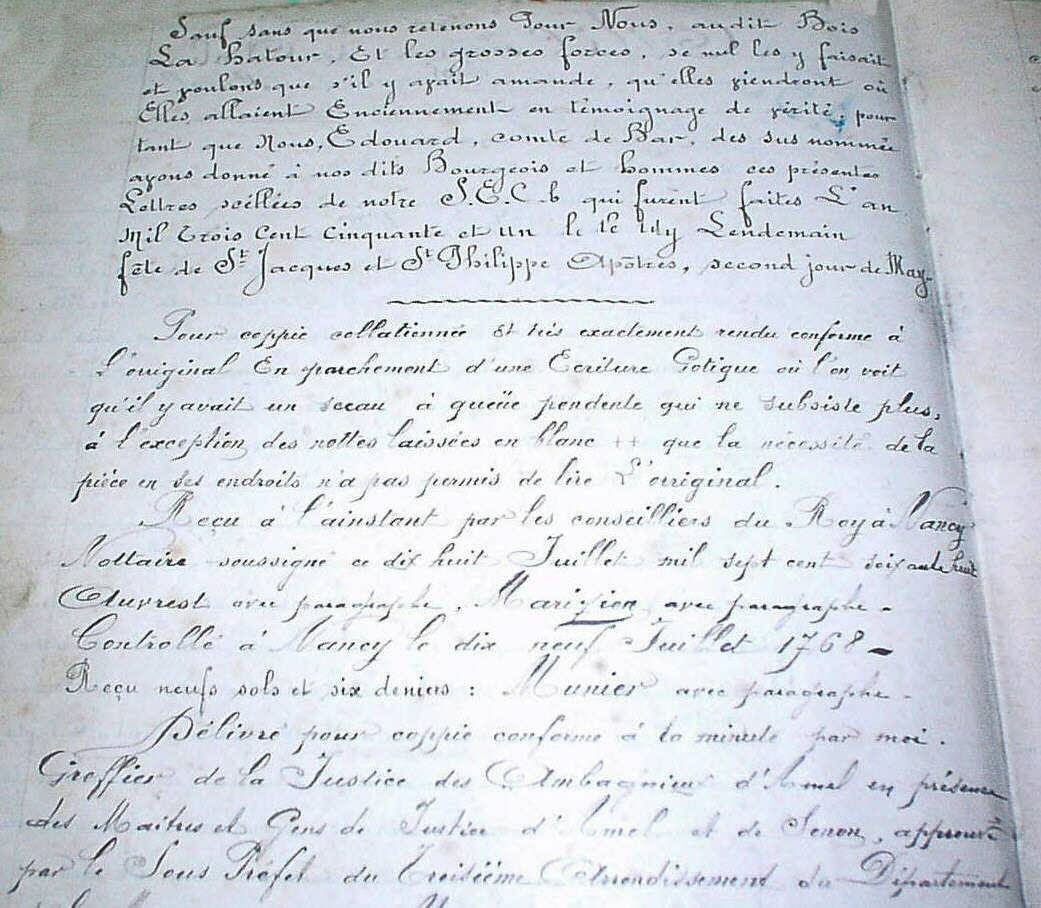 Sauf sans que nous retenons Pour Nous, audit Bois
La hatour, Et les grosses forces, se nul les y faisait
et voulons que s'il y avait amande, qu'elles viendront où
Elles allaient Enciennement en témoignage de vérité, pour
tant que Nous, Edouard, comte de Bar, des sus nommée
avons donné à nos dits Bourgeois et hommes ces présentes
Lettres scéllées de notre S.E.C.b qui furent faites L'an
Mil Trois Cent Cinquante et un le Lendemain
fête de St Jacques et St Philippe Apôtres, second jour de May-
Pour coppie collationnée Et très exactement rendu conforme à
L'orriginal En parchement d'une Ecriture Gotique où l'on voit
qu'il y avait un sceau à queüe pendente qui ne subsiste plus,
à l'exception des nottes laissées en blanc ++ que la nécessité de la
pièce en ses endroits n'a pas permis de lire L'orriginal.
Reçu à l'ainstant par les conseilliers du Roy à Nancy
Nottaire soussigné ce dix huit Juillet mil sept cent soixante huit
avec paragraphe, avec paragraphe -
Controllé à Nancy le dix neuf Juillet 1768 -
Reçu neufs sols et six deniers : Munier avec paragraphe -
Délivré pour coppie conforme à la minute par moi.
Greffier de la Justice des d'Amel en présence
des Maitres et Gens de Justice d'Amel et de Senon, approuvé
par le Sous Préfet du Troisiéme Arrondissement du Département